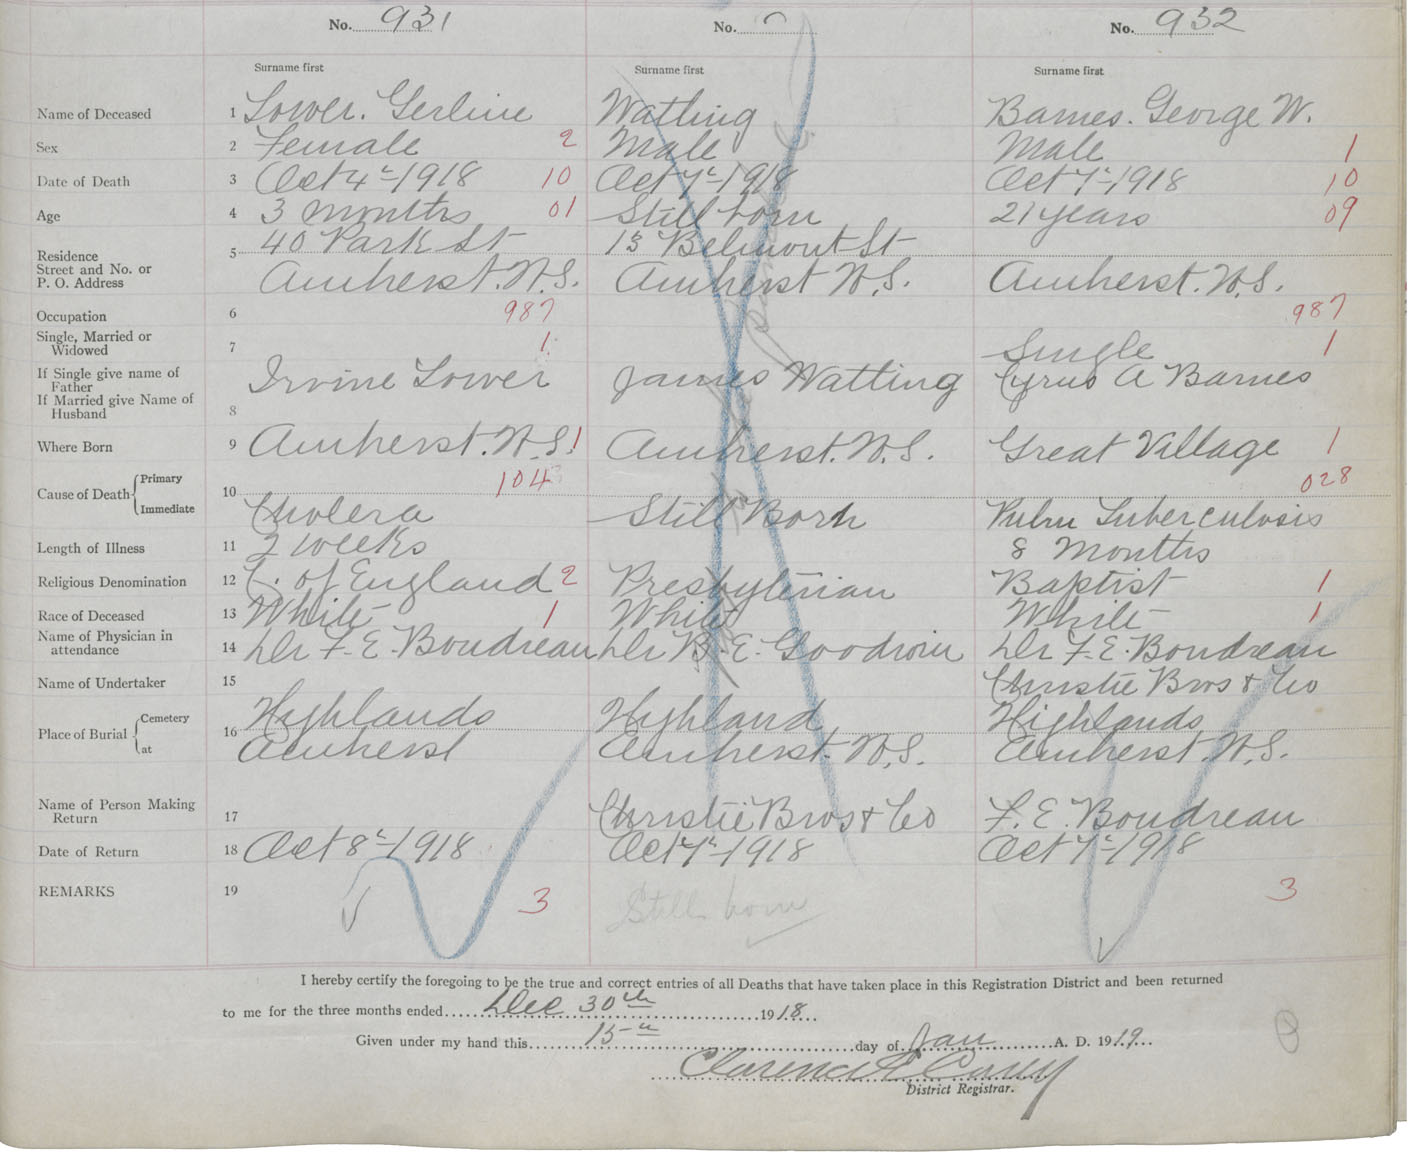 No. 931 No. No. 932
Surname first Surname first Surname first
Name of Deceased 1 Lower. Gerline Watling Barnes. George W.
Sex 2 Female 2 Male Male 1
Date of Death 3 Oct 4th 1918 10 Oct 7th 1918 Oct 7th 1918 10
Age 4 3 months 01 Still born 21 years 09
Residence 5 40 Park St 13 Belmont St
Street and No. or
P. O. Address Amherst. N.S. Amherst N.S. Amherst. N.S.
Occupation 6 987 987
Single, Married or
Widowed 7 1 Single 1
If Single give name of
Father Irvine Lower James Watling Cyrus A Barnes
If Married give Name of
Husband 8
Where Born 9 Amherst. N.S. 1 Amherst. N.S. Great Village 1
Cause of Death Primary 10 104 028
Immediate Cholera Still Born Pulm Tuberculosis
Length of Illness 11 2 weeks 8 Months
Religious Denomination 12 C. of England 2 Presbyterian Baptist 1
Race of Deceased 13 White 1 White White 1
Name of Physician in
attendance 14 Dr F. E. Boudreau Dr B. E. Goodwin Dr F. E. Boudreau
Name of Undertaker 15 Christie Bros & Co
Place of Burial Cemetery 16 Highlands Highland Highlands
at Amherst Amherst. N.S. Amherst. N.S.
Name of Person Making
Return 17 Christie Bros & Co F. E. Boudreau
Date of Return 18 Oct 8th 1918 Oct 7th 1918 Oct 7th 1918
REMARKS 19 3 Still born 3
I hereby certify the foregoing to be the true and correct entries of all Deaths that have taken place in this Registration District and been returned
to me for the three months ended Dec 30th 1918
Given under my hand this 15th day of Jan A. D. 1919
Clarence
District Registrar.